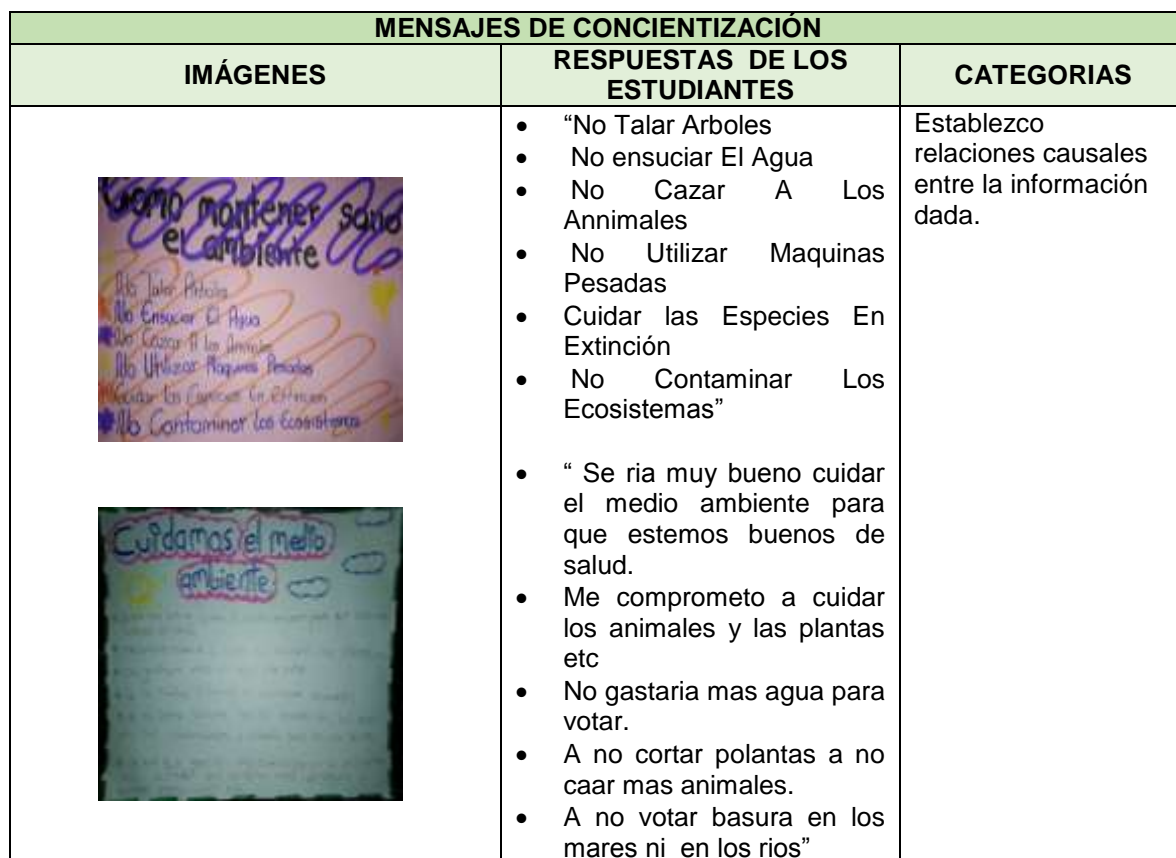 MENSAJES DE CONCIENTIZACIÓN
IMÁGENES
RESPUESTAS DE LOS
ESTUDIANTES
CATEGORIAS
Como mantener sano
el ambiente
No Talar Arboles
No Ensuciar El Agua
No Cazar A los Animales
No Utilizar Maquinas Pesadas
Cuidar las Especies En Extincion
No Contaminar Los Ecosistemas
Cuidamos el medio
ambiente
• “No Talar Arboles
• No ensuciar El Agua
• No Cazar A Los
Annimales
• No Utilizar Maquinas
Pesadas
• Cuidar las Especies En
Extinción
• No Contaminar Los
Ecosistemas”
• “ Se ria muy bueno cuidar
el medio ambiente para
que estemos buenos de
salud.
• Me comprometo a cuidar
los animales y las plantas
etc
• No gastaria mas agua para
votar.
• A no cortar polantas a no
caar mas animales.
• A no votar basura en los
mares ni en los rios”
Establezco
relaciones causales
entre la información
dada.